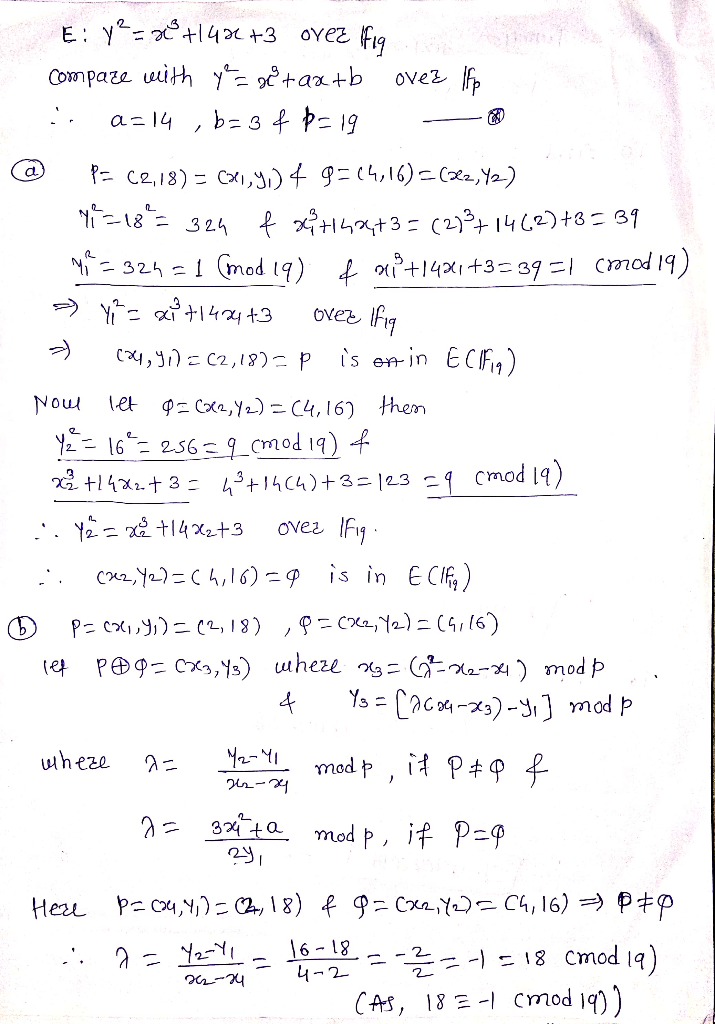 E: y² = x³+14x+3 over 𝔽19
Compare with y² = x³+ax+b over 𝔽p
∴ a=14 , b=3 & p=19 —⊛
ⓐ P= (2,18) = (x1,y1) & Q=(4,16)=(x2,y2)
y1²=18²= 324 & x1³+14x1+3 = (2)³+14(2)+3=39
y1² = 324 = 1 (mod 19) & x1³+14x1+3=39 =1 (mod 19)
⇒ y1² = x1³+14x1+3 over 𝔽19
⇒ (x1,y1)=(2,18)= P is in E(𝔽19)
Now let Q=(x2,y2)=(4,16) then
y2² = 16² = 256 = 9 (mod 19) &
x2³+14x2+3 = 4³+14(4)+3=123 =9 (mod 19)
∴ y2² = x2³+14x2+3 over 𝔽19.
∴ (x2,y2)=(4,16)=Q is in E(𝔽19)
ⓑ P=(x1,y1)=(2,18) , Q=(x2,y2)=(4,16)
let P⊕Q=(x3,y3) where x3=(λ²-x2-x1) mod p
& y3=[λ(x1-x3)-y1] mod p
where λ= (y2-y1)/(x2-x1) mod p , if P≠Q &
λ= (3x1²+a)/(2y1) mod p, if P=Q
Here P=(x1,y1)=(2,18) & Q=(x2,y2)=(4,16) ⇒ P≠Q
∴ λ = (y2-y1)/(x2-x1) = (16-18)/(4-2) = -2/2 = -1 = 18 (mod 19)
(As, 18 ≡ -1 (mod 19))